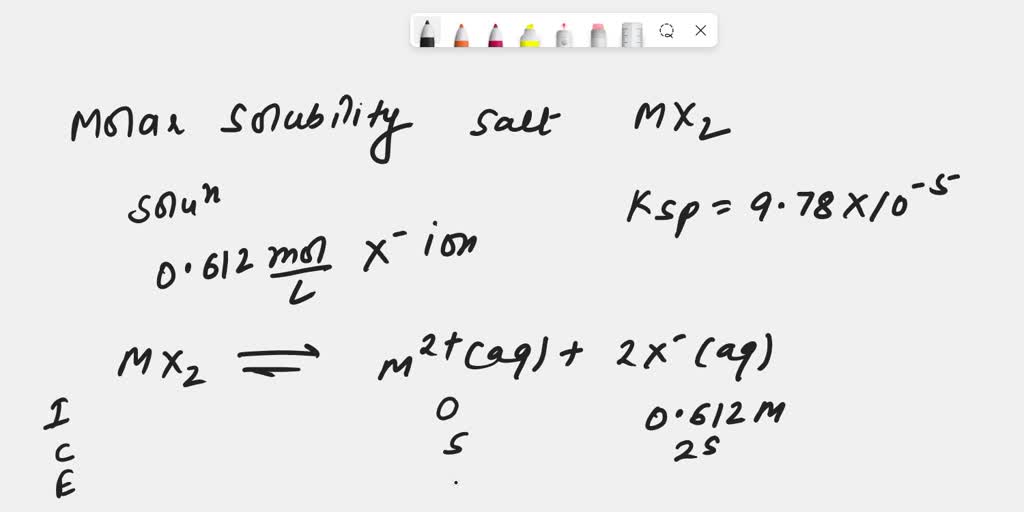 Molar solubility salt MX₂
soluⁿ Ksp = 9.78 X 10⁻⁵
0.612 mol/L X⁻ ion
MX₂ ⇌ M²⁺(aq) + 2X⁻(aq)
I 0 0.612 M
C S 2S
E .